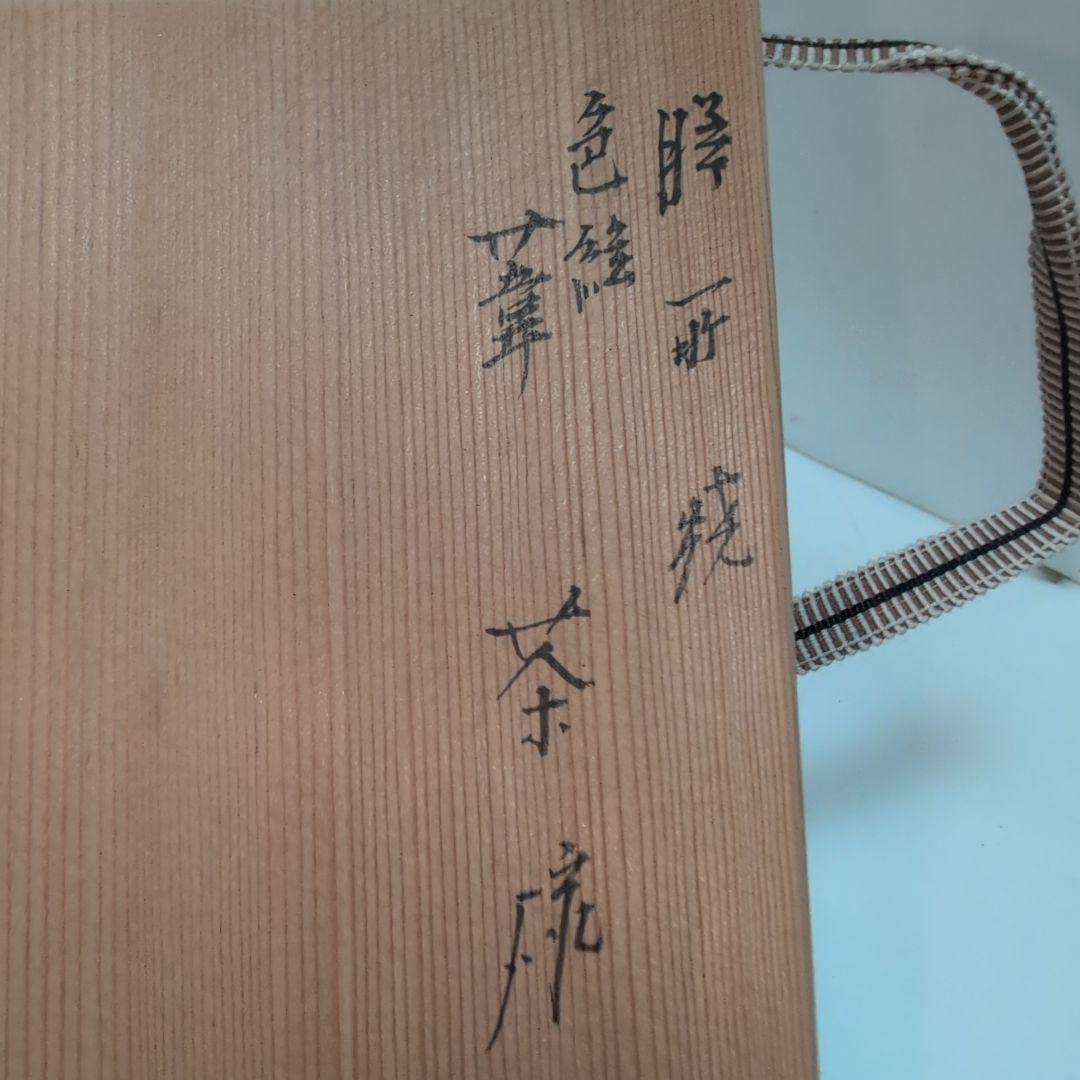 膳所焼
色絵
葦
茶碗